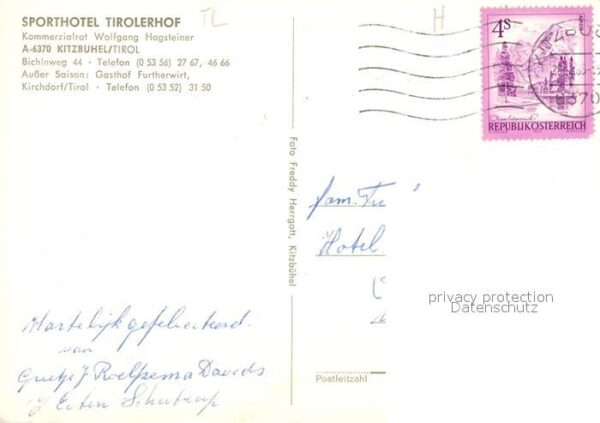 SPORTHOTEL TIROLERHOF
Kommerzialrat Wolfgang Hagsteiner
A-6370 KITZBÜHEL/TIROL
Bichlnweg 44 · Telefon (0 53 56) 27 67, 46 66
Außer Saison: Gasthof Furtherwirt,
Kirchdorf/Tirol · Telefon (0 53 52) 31 50
TL
H
4S
REPUBLIK ÖSTERREICH
6370
Foto Freddy Herrgott, Kitzbühel
fam.
Hotel
privacy protection
Datenschutz
Postleitzahl
Hartelijk gefeliciteerd.
van
Roelfsema Davids